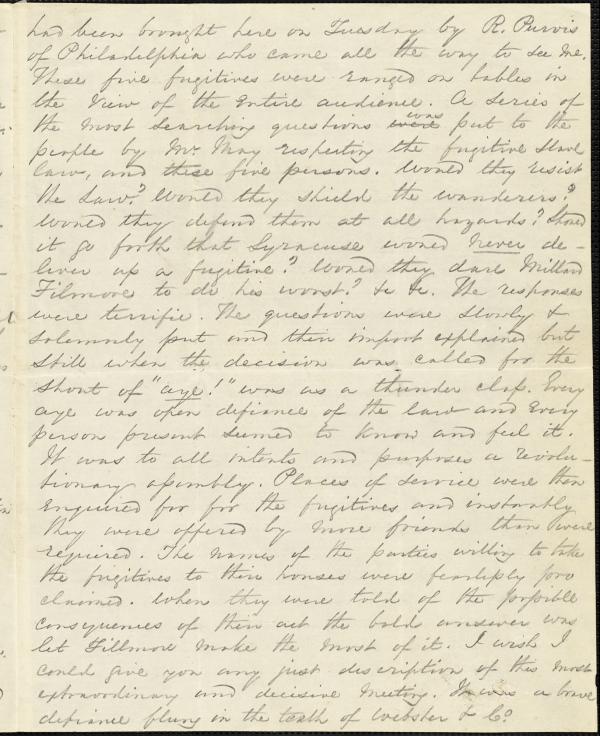 had been brought here on Tuesday by R. Purvis
of Philadelphia who came all the way to see me.
These five fugitives were ranged on tables in
the view of the entire audience. A series of
the most searching questions were was put to the
people by Mr May respecting the fugitive slave
law, and these five persons. Would they resist
the Law? Would they shield the wanderers?
Would they defend them at all hazards? Should
it go forth that Syracuse would never de-
liver up a fugitive? Would they dare Millard
Filmore to do his worst? &c &c. The responses
were terrific. The questions were slowly &
solemnly put and their import explained but
still when the decision was called for the
shout of "aye!" was as a thunder clap. Every
aye was open defiance of the law and every
person present seemed to know and feel it.
It was to all intents and purposes a revolu-
tionary assembly. Places of service were then
enquired for for the fugitives and instantly
they were offered by more friends than were
required. The names of the parties willing to take
the fugitives to their houses were fearlessly pro
claimed. When they were told of the possible
consequences of their act the bold answer was
let Fillmore make the most of it. I wish I
could give you any just description of this most
extraordinary and decisive meeting. It was a brave
defiance flung in the teeth of Webster & Co.